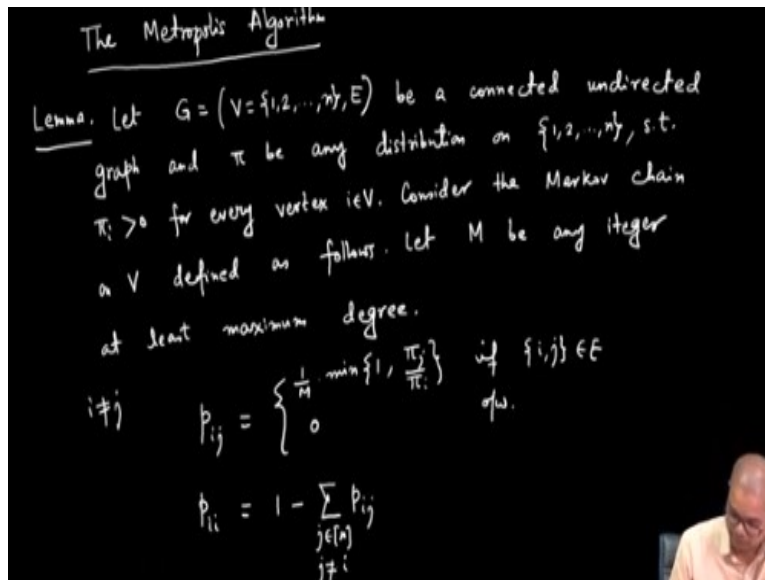 The Metropolis Algorithm
Lemma. Let G = (V = {1,2,...,n}, E) be a connected undirected
graph and π be any distribution on {1,2,...,n}, s.t.
πi > 0 for every vertex i∈V. Consider the Markov chain
on V defined as follows. Let M be any iteger
at least maximum degree.
i≠j pij = { 1/M · min{1, πj/πi} if {i,j} ∈ E
0 o/w.
pii = 1 - ∑ pij
j∈[n]
j≠i